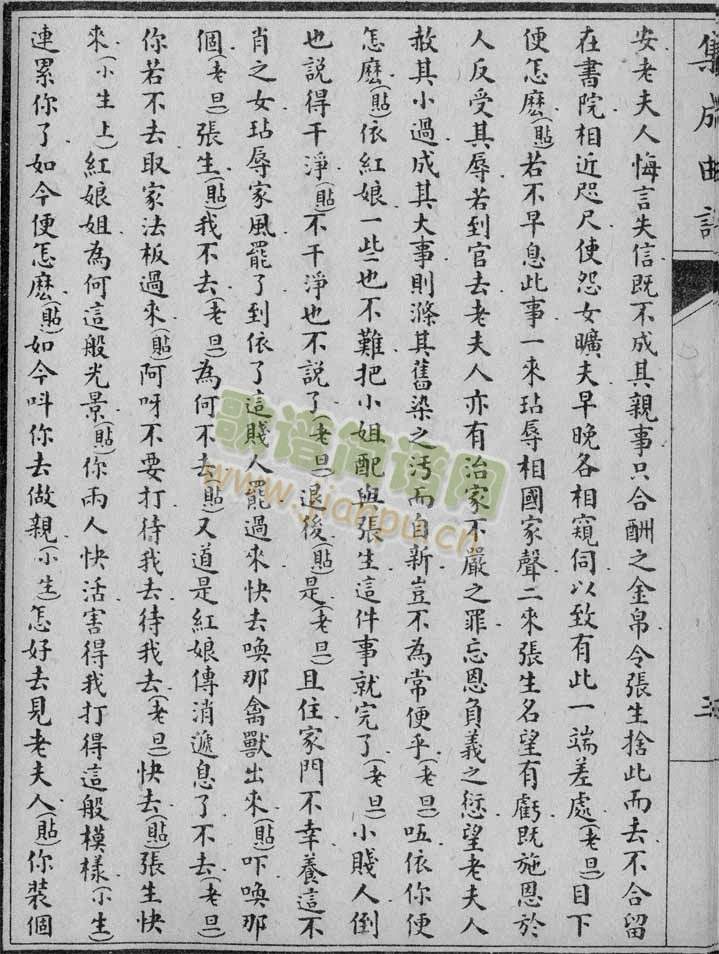 集成曲譜
三
安老夫人悔言失信既不成其親事只合酬之金帛令張生捨此而去不合留
在書院相近咫尺使怨女曠夫早晚各相窺伺以致有此一端差處(老旦)目下
便怎麽(貼)若不早息此事一來玷辱相國家聲二來張生名望有虧既施恩於
人反受其辱若到官去老夫人亦有治家不嚴之罪忘恩負義之愆望老夫人
赦其小過成其大事則滌其舊染之汚而自新豈不為常便乎(老旦)㕶依你便
怎麽(貼)依紅娘一些也不難把小姐配與張生這件事就完了(老旦)小賤人倒
也説得干淨(貼)不干淨也不説了(老旦)退後(貼)是(老旦)且住家門不幸養這不
肖之女玷辱家風罷了到依了這賤人罷過來快去喚那禽獸出來(貼)吓喚那
個(老旦)張生(貼)我不去(老旦)為何不去(貼)又道是紅娘傳消遞息了不去(老旦)
你若不去取家法板過來(貼)阿呀不要打待我去待我去(老旦)快去(貼)張生快
來(小生上)紅娘姐為何這般光景(貼)你兩人快活害得我打得這般模樣(小生)
連累你了如今便怎麽(貼)如今呌你去做親(小生)怎好去見老夫人(貼)你装個
歌谱简谱网
www.jianpu.cn